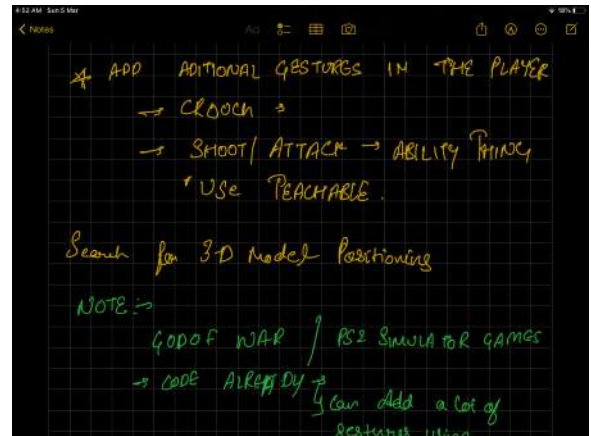 4:52 AM Sun 5 Mar
Notes
ADD ADITIONAL GESTURES IN THE PLAYER
→ CROOCH →
→ SHOOT/ ATTACK → ABILITY THING
USE PEACHABLE.
Search for 3-D Model Positioning
NOTE:→
GOD OF WAR / PS2 SIMULATOR GAMES
→ CODE ALREADY →
can add a lot of
gestures using